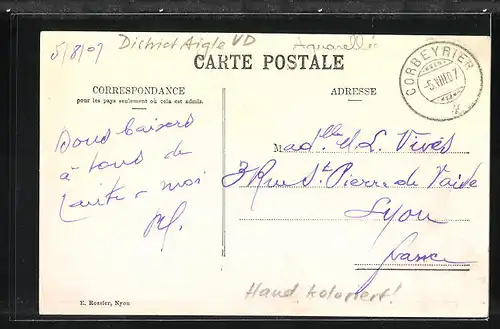 5/8/07 District Aigle VD Aquarelle
CARTE POSTALE
CORBEYRIER
-5.VIII.07
CORRESPONDANCE
pour les pays seulement où cela est admis.
ADRESSE
Bons baisers
à tous de
moi
Madlle L. Vivès
3 Rue St Pierre de Vaise
Lyon
france
Hand koloriert!
E. Rossier, Nyon